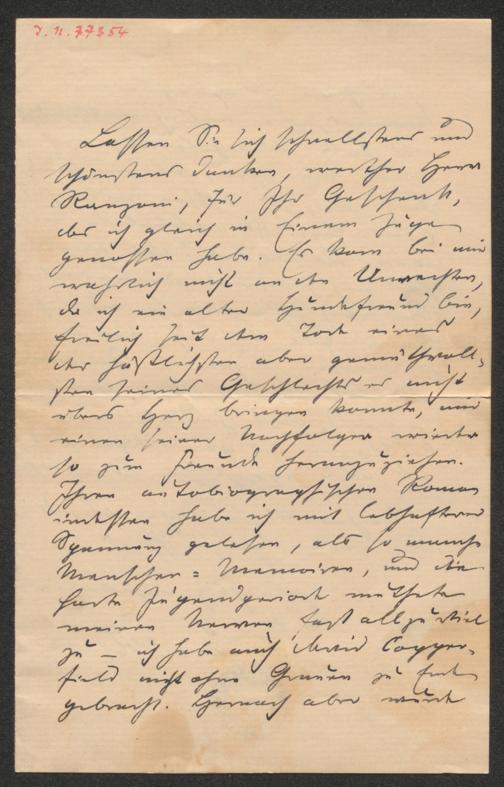 I. N. 77354
Lassen Sie sich schnellstens und
schönstens danken, werther Herr
Ranzoni, für Ihr Geschenk,
das ich gleich in Einem Zuge
genossen habe. Es kam bei mir
wahrlich nicht an den Unrechten,
da ich ein alter Hundefreund bin,
freilich seit dem Tode eines
der häßlichsten aber gemüthvoll-
sten seines Geschlechts es nicht
übers Herz bringen konnte, mir
einen seiner Nachfolger wieder
so zum Freunde heranzuziehen.
Ihren autobiographischen Roman
indessen habe ich mit lebhafterer
Spannung gelesen, als so manche
Menschen-Memoiren, und die
harte Jugendperiode muthete
meinen Nerven fast allzuviel
zu – ich habe auch David Copper-
field nicht ohne Grauen zu Ende
gebracht. Hernach aber wurde